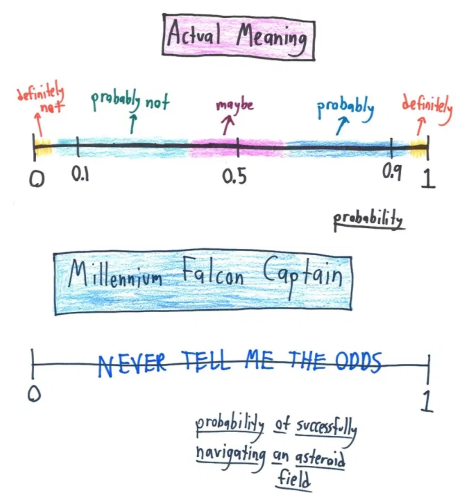 Actual Meaning
definitely not
probably not
maybe
probably
definitely
0
0.1
0.5
0.9
1
probability
Millennium Falcon Captain
NEVER TELL ME THE ODDS
0
1
probability of successfully
navigating an asteroid
field